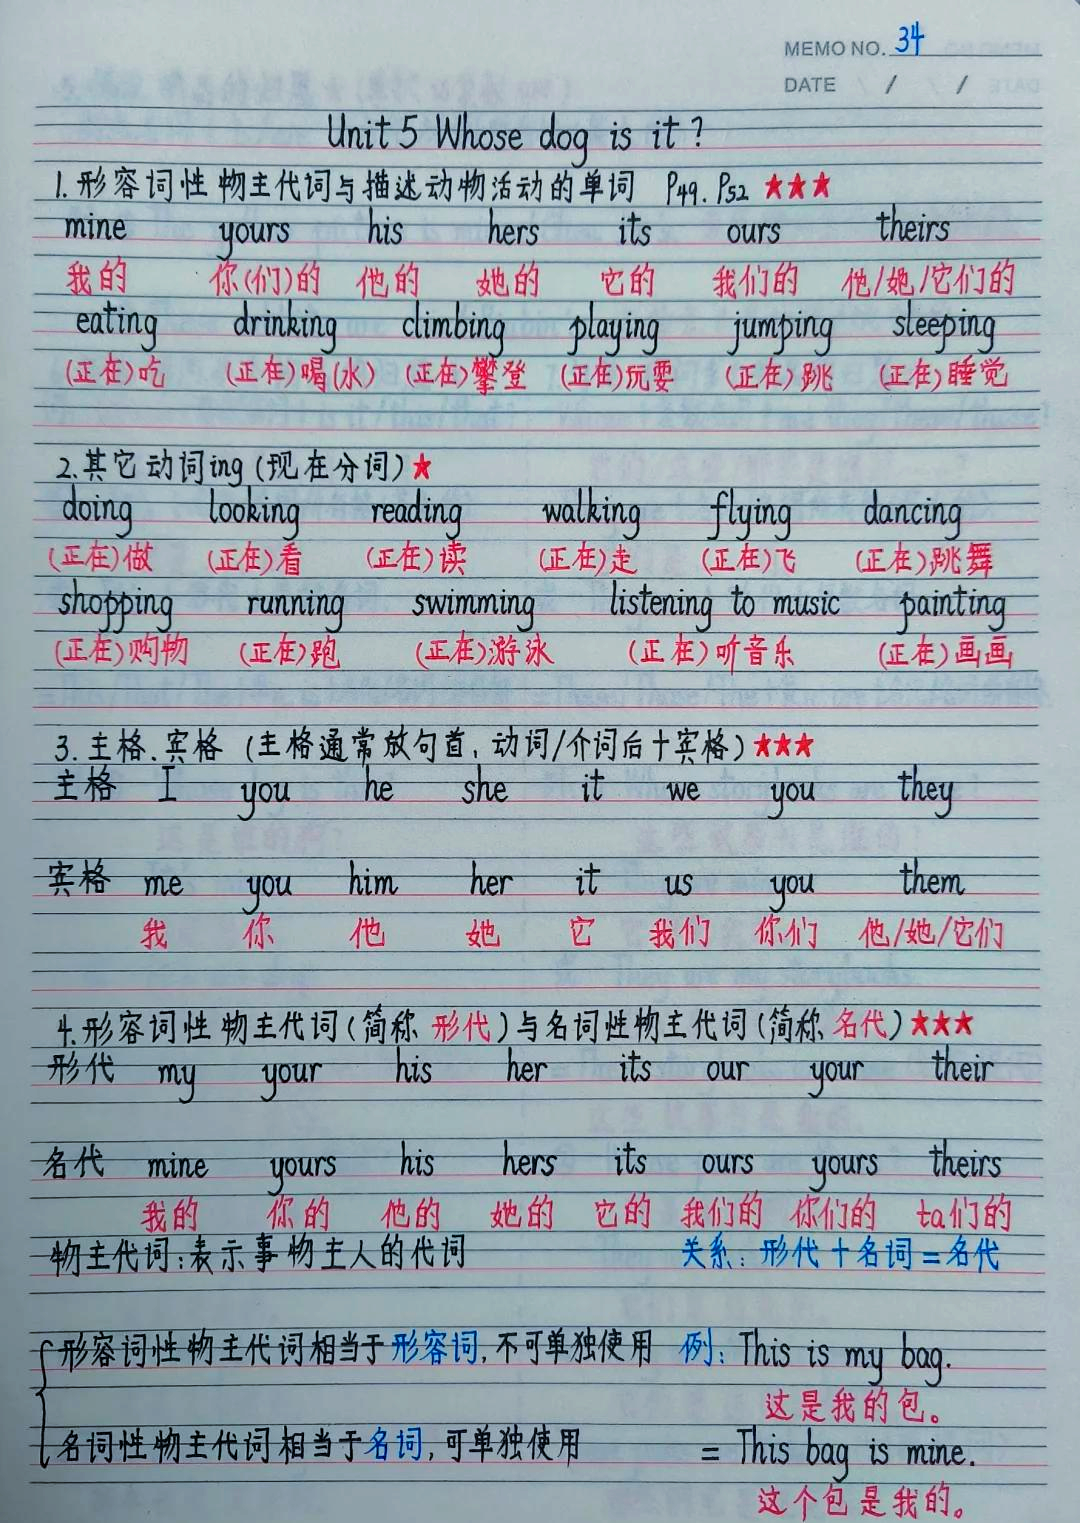 MEMO NO. 34
DATE / /
Unit 5 Whose dog is it?
1.形容词性物主代词与描述动物活动的单词 P49. P52 ★★★
mine yours his hers its ours theirs
我的 你(们)的 他的 她的 它的 我们的 他/她/它们的
eating drinking climbing playing jumping sleeping
(正在)吃 (正在)喝(水) (正在)攀登 (正在)玩耍 (正在)跳 (正在)睡觉
2.其它动词ing(现在分词)★
doing looking reading walking flying dancing
(正在)做 (正在)看 (正在)读 (正在)走 (正在)飞 (正在)跳舞
shopping running swimming listening to music painting
(正在)购物 (正在)跑 (正在)游泳 (正在)听音乐 (正在)画画
3.主格.宾格 (主格通常放句首, 动词/介词后+宾格)★★★
主格 I you he she it we you they
宾格 me you him her it us you them
我 你 他 她 它 我们 你们 他/她/它们
4.形容词性物主代词(简称 形代)与名词性物主代词(简称 名代)★★★
形代 my your his her its our your their
名代 mine yours his hers its ours yours theirs
我的 你的 他的 她的 它的 我们的 你们的 ta们的
物主代词:表示事物主人的代词 关系: 形代+名词=名代
形容词性物主代词相当于形容词,不可单独使用 例: This is my bag.
这是我的包。
名词性物主代词相当于名词,可单独使用 = This bag is mine.
这个包是我的。